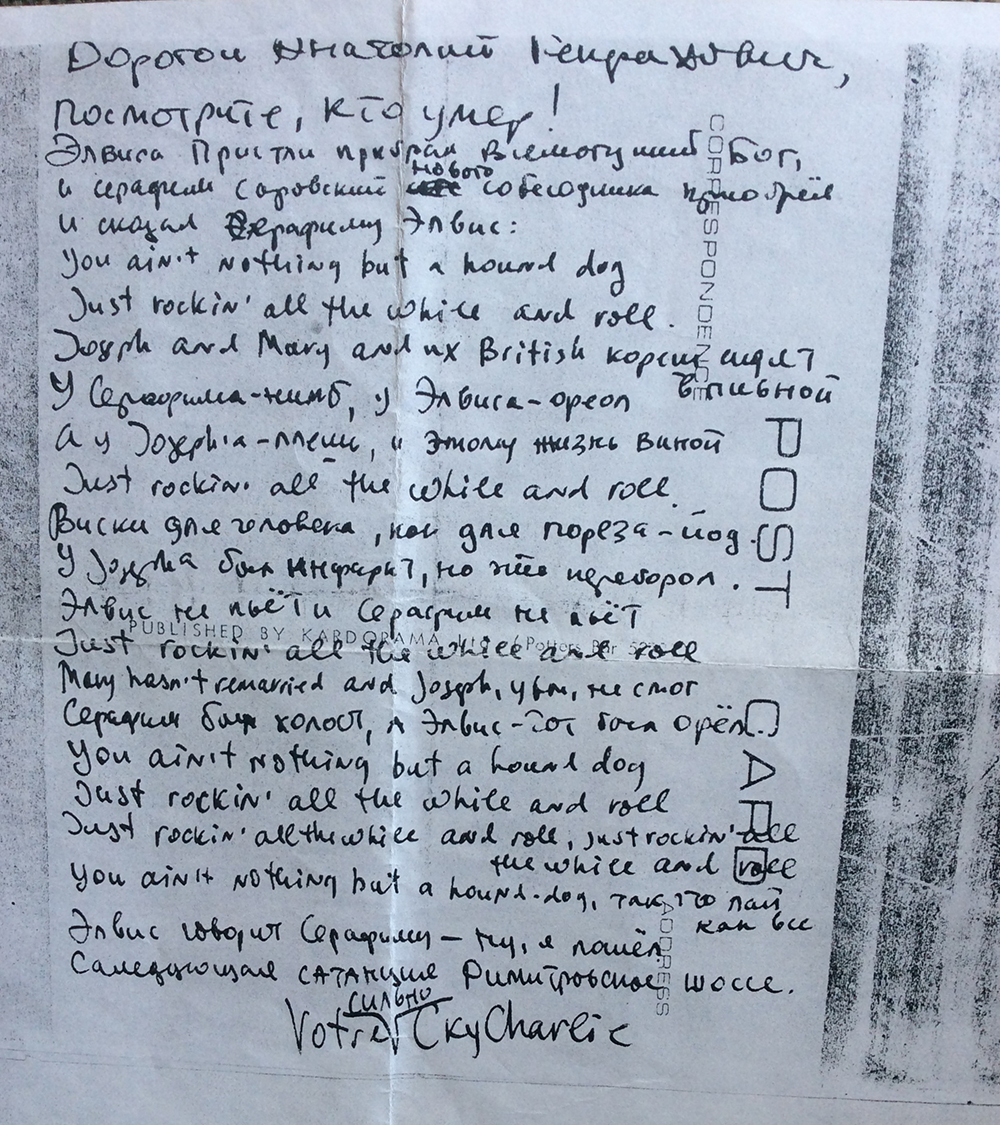 Дорогой Анатолий Генрахович,
Посмотрите, кто умер!
Элвиса Пристли прибрал Всемогущий Бог,
и серафим Саровский нового собеседника приобрёл
и сказал Серафиму Элвис:
You ain't nothing but a hound dog
Just rockin' all the while and roll.
Joseph and Mary and их British кореш идят
в пивной
У Серафима-нимб, у Элвиса-ореол
А у Joseph'а-плешь, и этому жизнь виной
Just rockin' all the while and roll.
Виски для человека, как для пореза-йод.
У Joseph'а был инфаркт, но это переборол.
Элвис не пьёт и Серафим не пьёт
Just rockin' all the while and roll
Mary hasn't remarried and Joseph, увы, не смог
Серафим был холост, а Элвис-тот был орёл.
You ain't nothing but a hound dog
Just rockin' all the while and roll
Just rockin' all the while and roll, just rockin' all
the while and roll
You ain't nothing but a hound-dog, так что лай
как все
Элвис говорит Серафиму - ну, я пошёл
Саледующая сатанция Римитровское шоссе.
сильно
Votre СкуCharlie
CORRESPONDENCE
POST
CARD
ADDRESS
PUBLISHED BY KARDORAMA Ltd.